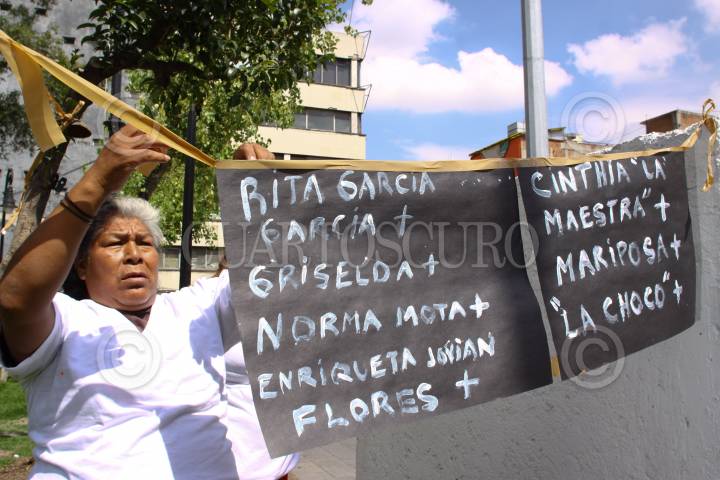 RITA GARCIA
GARCIA +
GRISELDA +
NORMA MOTA +
ENRIQUETA JOVIAN
FLORES +
CINTHIA "LA
MAESTRA" +
MARIPOSA +
"LA CHOCO" +
CUARTOSCURO
©
©
©